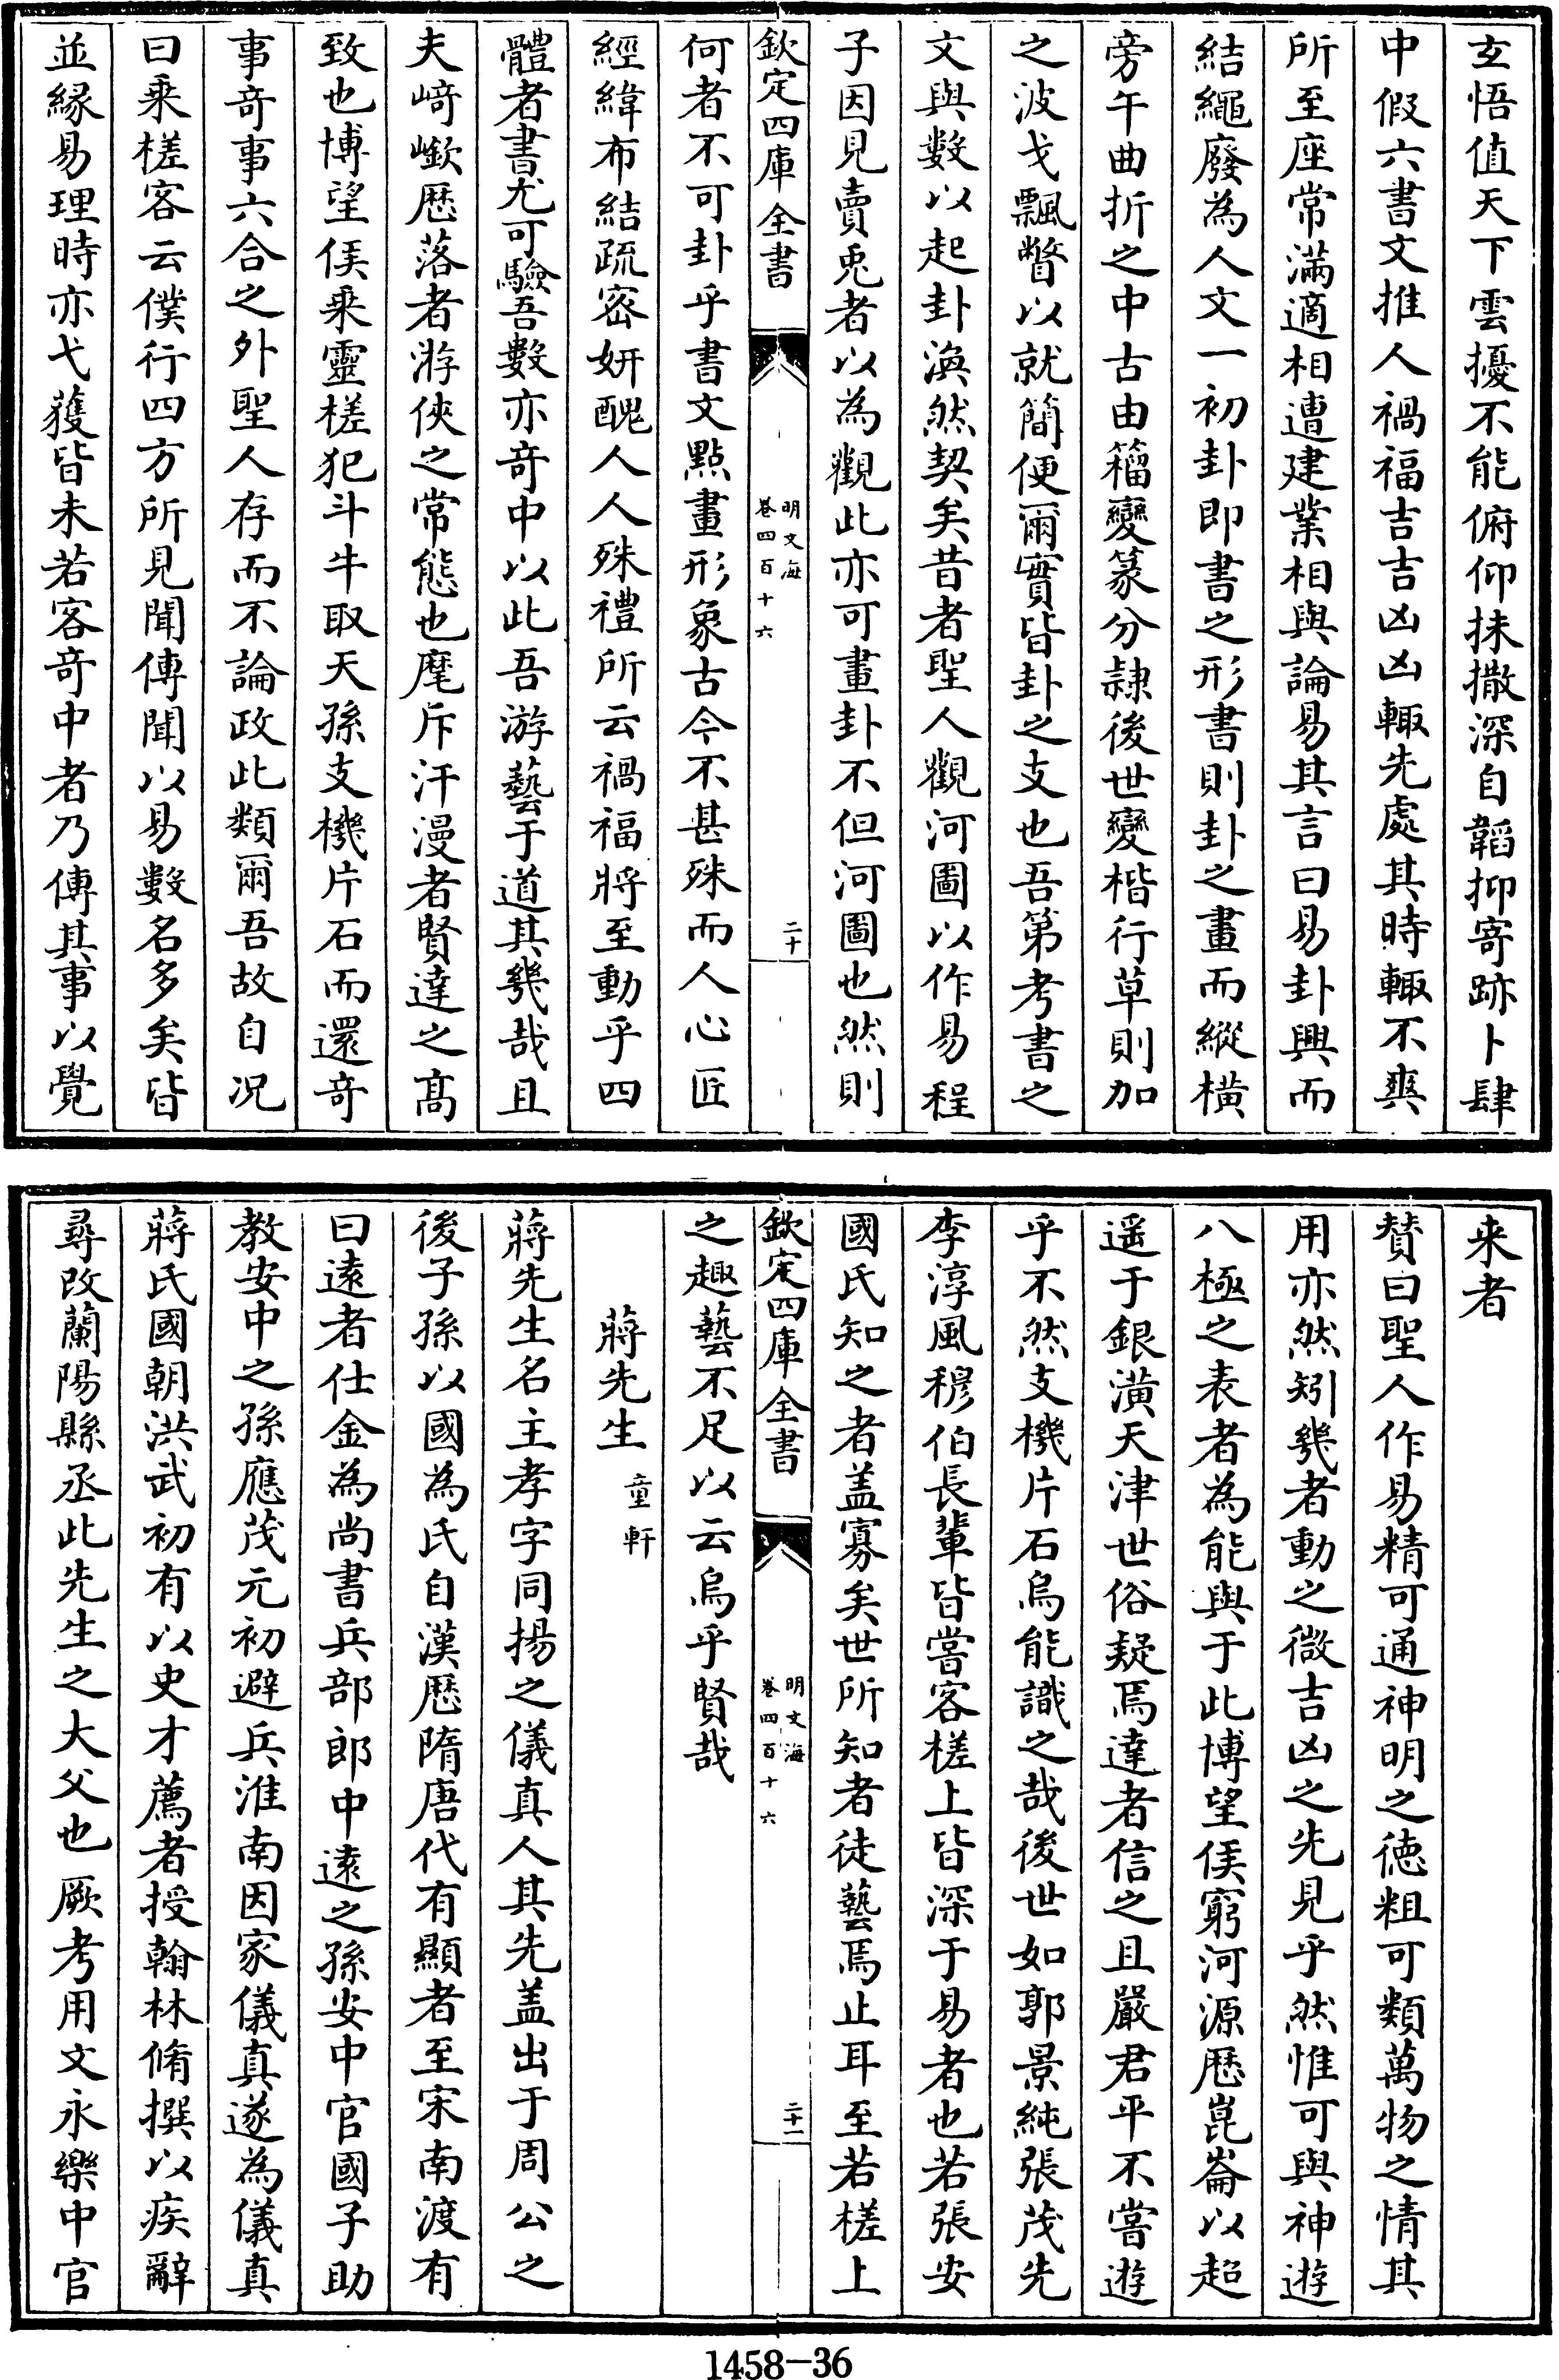 玄悟值天下雲擾不能俯仰抹撒深自韜抑寄跡卜肆
中假六書文推人禍福吉吉凶凶輙先處其時輙不爽
所至座常滿適相遭建業相與論易其言曰易卦興而
結繩廢為人文一初卦即書之形書則卦之畫而縱橫
旁午曲折之中古由籕變篆分隷後世變楷行草則加
之波戈飄瞥以就簡便爾實皆卦之支也吾第考書之
文與數以起卦渙然契矣昔者聖人觀河圖以作易程
子因見賣兎者以為觀此亦可畫卦不但河圖也然則
欽定四庫全書
明文海
卷四百十六
二十
何者不可卦乎書文點畫形象古今不甚殊而人心匠
經緯布結疏密妍醜人人殊禮所云禍福將至動乎四
體者書尤可驗吾數亦竒中以此吾游藝于道其幾哉且
夫﨑嶔歴落者游俠之常態也麾斥汗漫者賢達之髙
致也博望侯乗靈槎犯斗牛取天孫支機片石而還竒
事竒事六合之外聖人存而不論政此類爾吾故自况
曰乗槎客云僕行四方所見聞傳聞以易數名多矣皆
並緣易理時亦弋獲皆未若客竒中者乃傳其事以覺
来者
贊曰聖人作易精可通神明之徳粗可類萬物之情其
用亦然矧幾者動之微吉凶之先見乎然惟可與神遊
八極之表者為能與于此博望侯窮河源歴崑崙以超
遥于銀潢天津世俗疑焉達者信之且嚴君平不嘗遊
乎不然支機片石烏能識之哉後世如郭景純張茂先
李淳風穆伯長輩皆嘗客槎上皆深于易者也若張安
國氏知之者盖寡矣世所知者徒藝焉止耳至若槎上
欽定四庫全書
明文海
卷四百十六
二十一
之趣藝不足以云烏乎賢哉
蔣先生 童軒
蔣先生名主孝字同揚之儀真人其先盖出于周公之
後子孫以國為氏自漢歴隋唐代有顯者至宋南渡有
曰逺者仕金為尚書兵部郎中逺之孫安中官國子助
教安中之孫應茂元初避兵淮南因家儀真遂為儀真
蔣氏國朝洪武初有以史才薦者授翰林脩撰以疾辭
尋改蘭陽縣丞此先生之大父也厥考用文永樂中官
1458-36